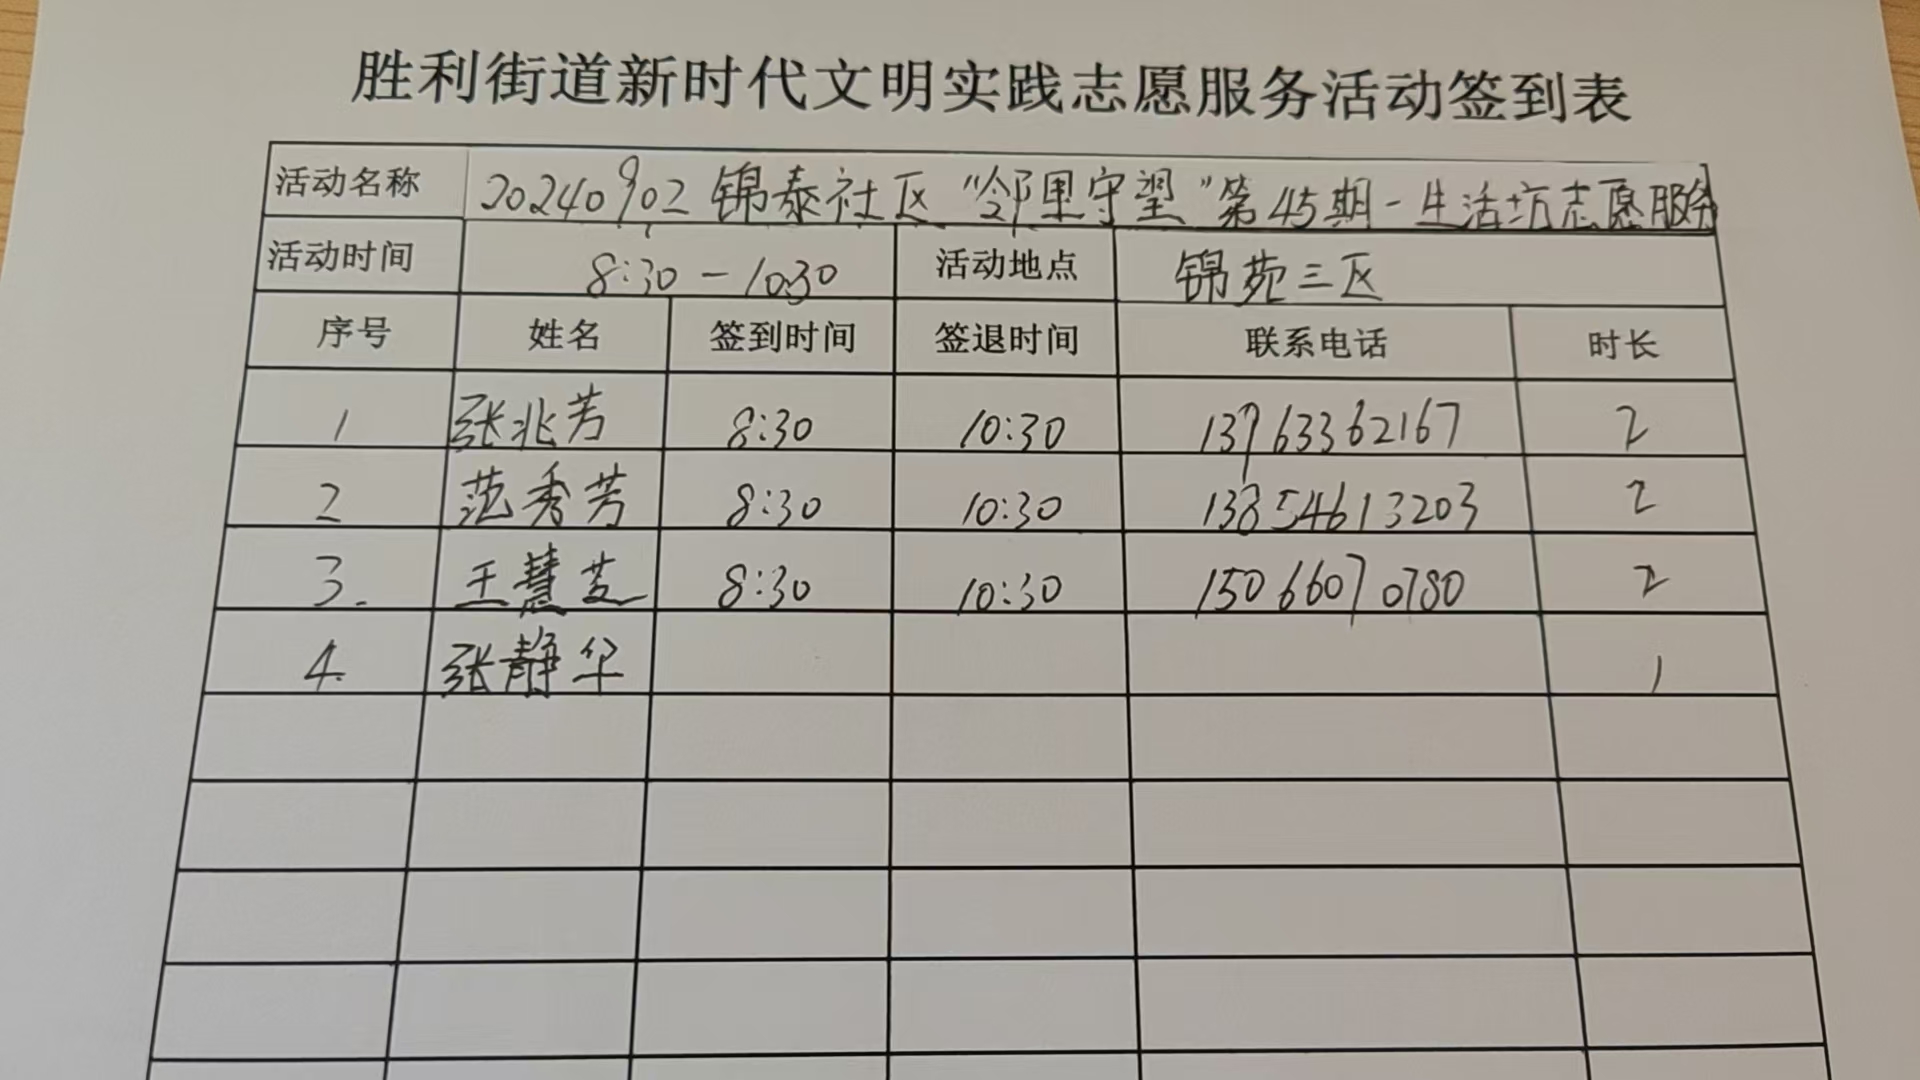 胜利街道新时代文明实践志愿服务活动签到表
活动名称 20240902 锦泰社区“邻里守望”第45期-生活坊志愿服务
活动时间 8:30-10:30 活动地点 锦苑三区
序号 姓名 签到时间 签退时间 联系电话 时长
1 张兆芳 8:30 10:30 13963362167 2
2 范秀芳 8:30 10:30 13854613203 2
3. 王慧芝 8:30 10:30 15066070780 2
4. 张静华 1